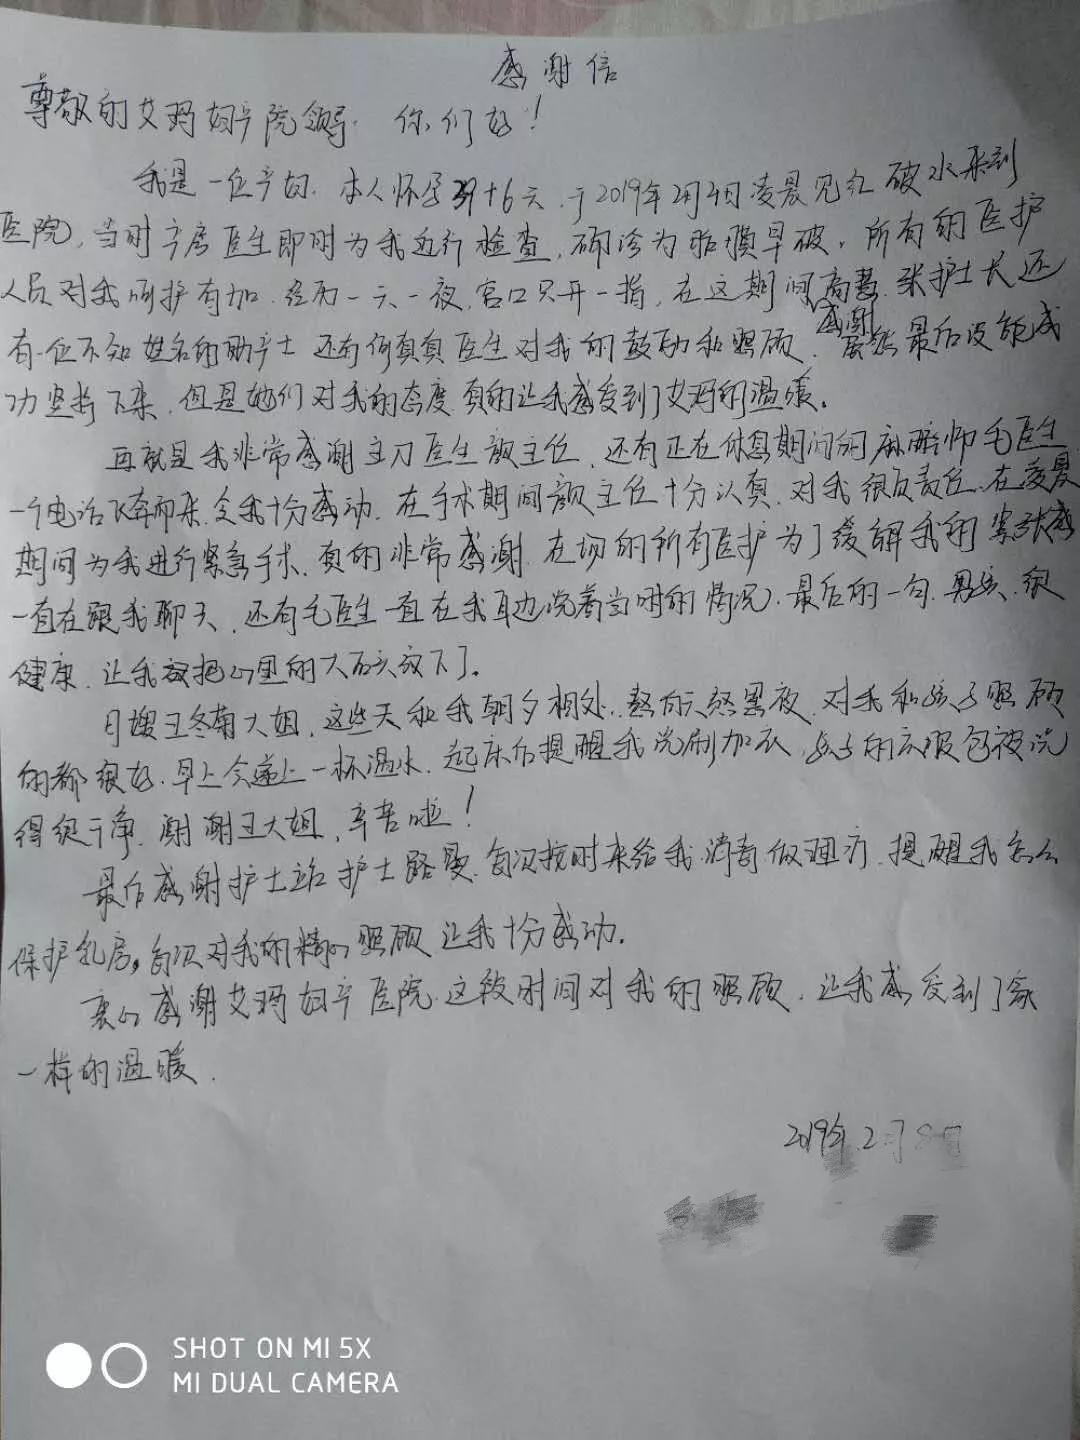 感谢信
尊敬的艾玛妇产院领导. 你们好!
我是一位产妇. 本人怀孕39+6天, 于2019年2月4日凌晨见红破水来到
医院, 当时产房医生即时为我进行检查, 确诊为胎膜早破. 所有的医护
人员对我呵护有加. 经历一天一夜, 宫口只开一指, 在这期间高慧. 张护士长还
感谢
有一位不知姓名的助产士 还有何真真医生对我的鼓励和照顾, 虽然最后没能成
功坚持下来, 但是她们对我的态度 真的让我感受到了艾玛的温暖.
再就是我非常感谢主刀医生颜主任, 还有正在休息期间的麻醉师毛医生
一个电话飞奔而来, 令我十分感动. 在手术期间颜主任十分认真, 对我很负责任, 在凌晨
期间为我进行紧急手术, 真的非常感谢. 在场的所有医护为了缓解我的紧张感
一直在跟我聊天, 还有毛医生一直在我耳边说着当时的情况. 最后的一句. 男孩, 很
健康, 让我把心里的大石头放下了.
月嫂王冬菊大姐, 这些天和我朝夕相处, 熬夜, 对我和孩子照顾
的都很好. 早上会递上一杯温水, 起床后提醒我洗刷加衣, 孩子的衣服包被洗
得很干净. 谢谢王大姐, 辛苦啦!
最后感谢护士站护士路曼. 每次按时来给我消毒做理疗. 提醒我怎么
保护乳房, 每次对我的精心照顾让我十分感动.
衷心感谢艾玛妇产医院. 这段时间对我的照顾, 让我感受到了家
一样的温暖.
2019年2月8日
SHOT ON MI 5X
MI DUAL CAMERA